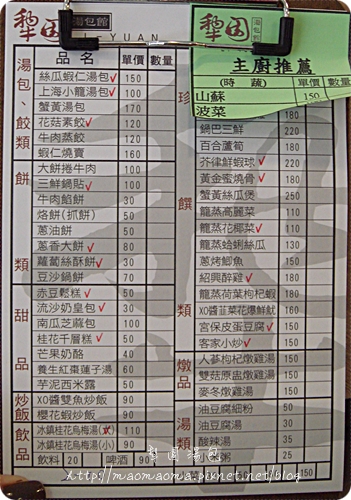 犁園 湯包館
LI YUAN
品名 單價 數量
湯包、餃類
絲瓜蝦仁湯包 150
上海小籠湯包 100
蟹黃湯包 170
花菇素餃 120
牛肉蒸餃 120
蝦仁燒賣 160
餅類
大餅捲牛肉 100
三鮮鍋貼 100
牛肉餡餅 50
烙餅(抓餅) 30
蔥油餅 50
蔥香大餅 80
蘿蔔絲酥餅 30
豆沙鍋餅 70
甜品
赤豆鬆糕 50
流沙奶皇包 30
南瓜芝麻包 100
桂花千層糕 50
芒果奶酪 40
養生紅棗蓮子湯 60
芋泥西米露 50
炒飯
XO醬雙魚炒飯 90
櫻花蝦炒飯 90
飲品
冰鎮桂花烏梅湯(大) 110
冰鎮桂花烏梅湯(小) 90
飲料 20 啤酒 90
犁園
湯包館
主廚推薦
(時蔬) 單價 數量
山蘇 150
波菜
珍饌類
180
鍋巴三鮮 220
百合蘆筍 180
芥律鮮蝦球 220
黃金蜜燒骨 180
蟹黃絲瓜煲 250
龍蒸高麗菜 110
龍蒸花椰菜 110
龍蒸蛤蜊絲瓜 130
蔥烤鯽魚 150
紹興醉雞 150
龍蒸荷葉枸杞蝦 180
XO醬韮菜花爆鮮魷 160
宮保皮蛋豆腐 150
客家小炒 150
燉品
人蔘枸杞燉雞湯 150
雙菇原盅燉雞湯 150
麥冬燉雞湯 150
湯類
油豆腐細粉 50
油豆腐湯 35
酸辣湯 35
粥 25
犁園湯包
http://maomaoma.pixnet.net/blog